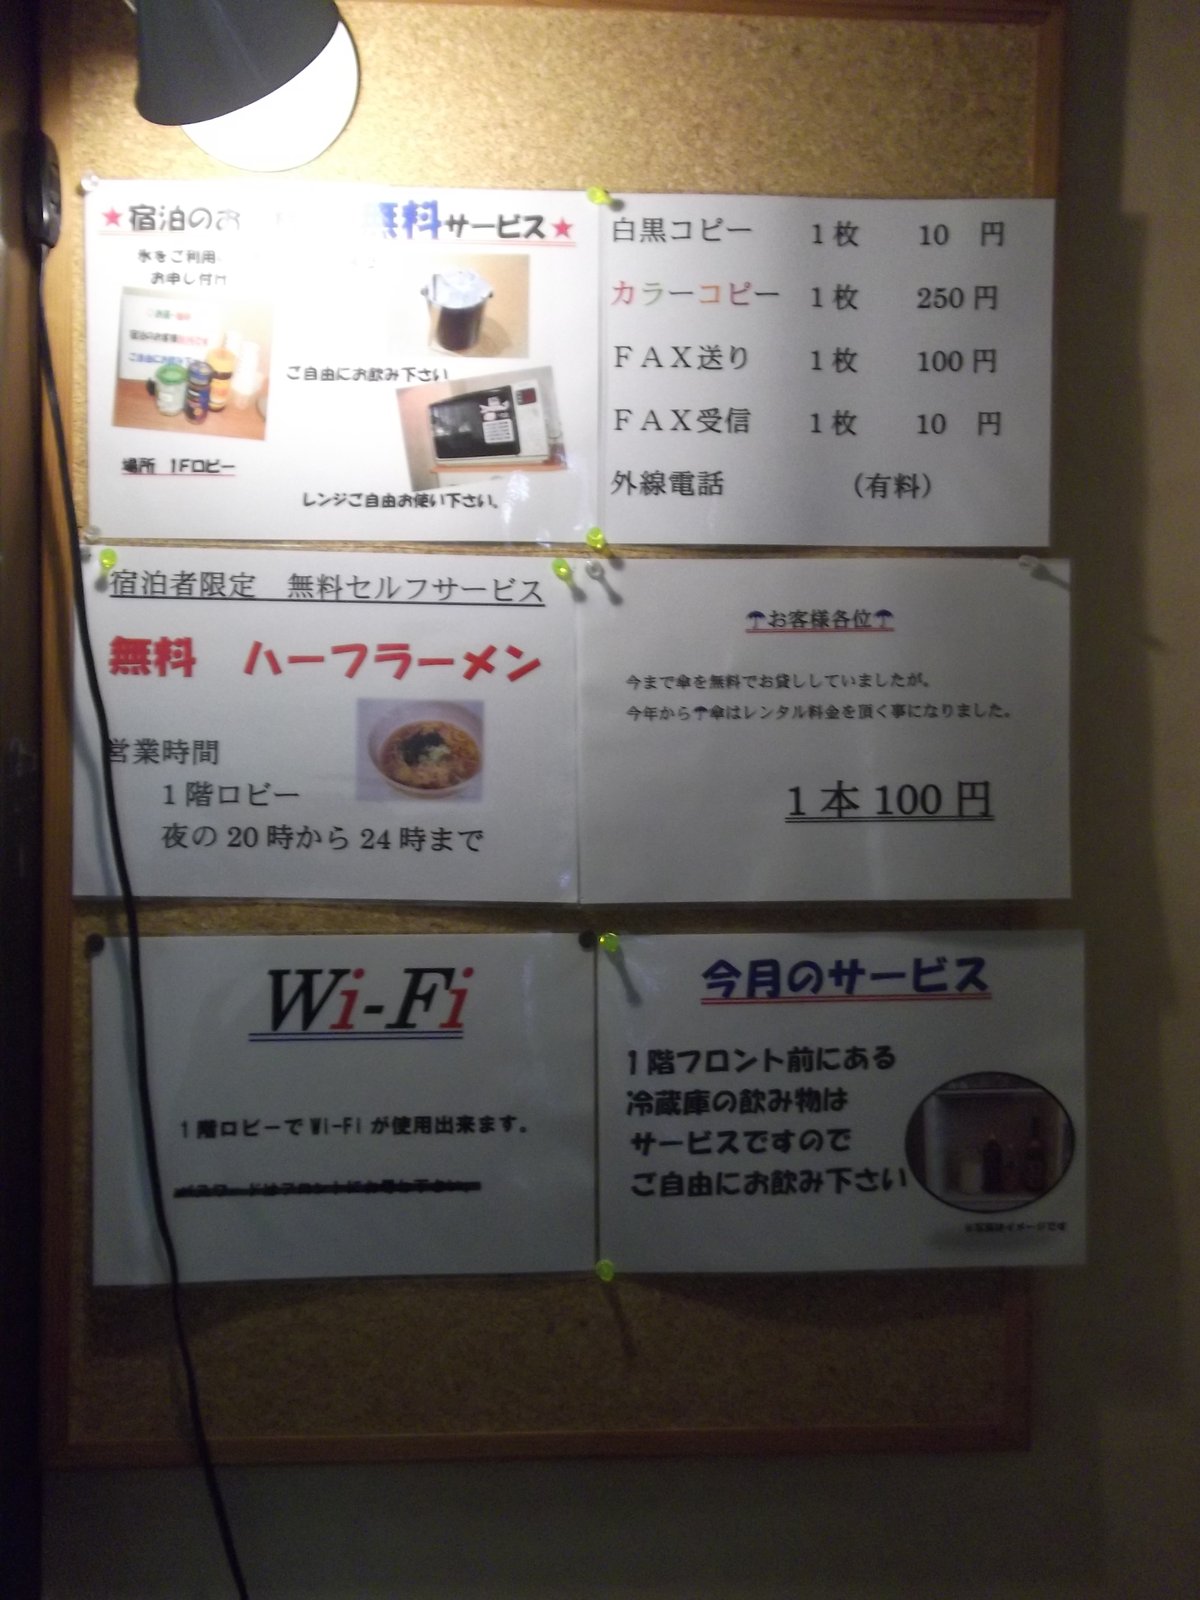 ★宿泊のお 無料サービス★
氷をご利用
お申し付け
ご自由にお飲み下さい
場所 1Fロビー
レンジご自由お使い下さい。
白黒コピー 1枚 10 円
カラーコピー 1枚 250円
FAX送り 1枚 100円
FAX受信 1枚 10 円
外線電話 (有料)
宿泊者限定 無料セルフサービス
無料 ハーフラーメン
営業時間
1階ロビー
夜の20時から24時まで
☂お客様各位☂
今まで傘を無料でお貸ししていましたが、
今年から☂傘はレンタル料金を頂く事になりました。
1本100円
Wi-Fi
1階ロビーでWi-Fiが使用出来ます。
今月のサービス
1階フロント前にある
冷蔵庫の飲み物は
サービスですので
ご自由にお飲み下さい
※写真はイメージです